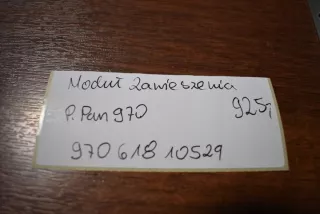 Moduł zawieszenia
P. Pan 970 925,-
970 618 105 29